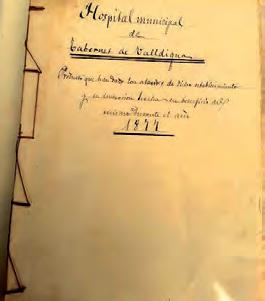 Hospital municipal
de
Tabernes de Valldigna
Producto que han dado los atauds de dicho establecimiento
y su inversion hecha en beneficio del
mismo durante el año
1877